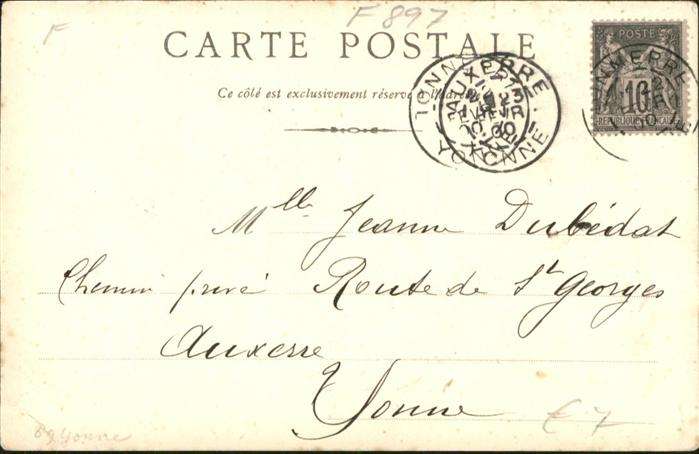 F
F 897
CARTE POSTALE
Ce côté est exclusivement réservé à l'adresse
POSTE
10
REPUBLIQUE FRANCAISE
AUXERRE
YONNE
TONNERRE
YONNE
Mlle Jeanne Dubédat
Chemin privé Route de St Georges
Auxerre
Yonne
€ 7
89 Yonne